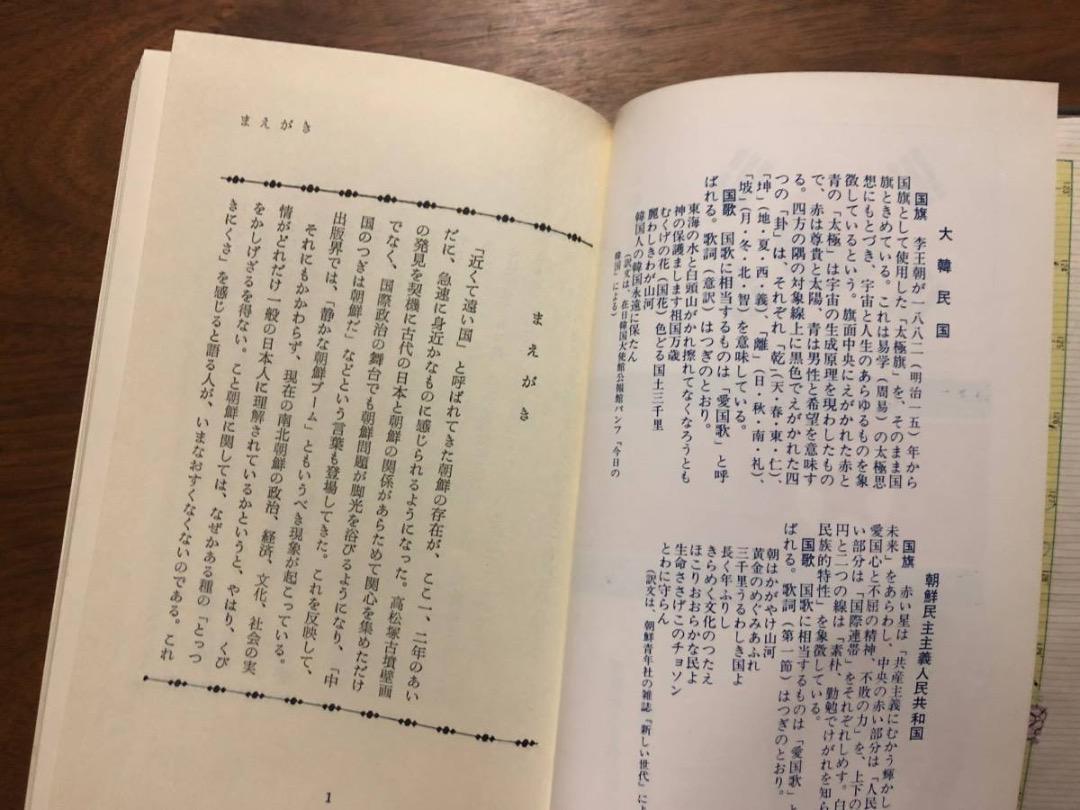 大韓民国
国旗 李王朝が一八八二(明治一五)年から
国旗として使用した「太極旗」を、そのまま国
旗ときめている。これは易学(周易)の太極思
想にもとづき、宇宙と人生のあらゆるものを象
徴しているという。旗面中央にえがかれた赤と
青の「太極」は宇宙の生成原理を現わしたもの
で、赤は尊貴と太陽、青は男性と希望を意味す
る。四方の隅の対象線上に黒色でえがかれた四
つの「卦」は、それぞれ「乾」(天・春・東・仁)、
「坤」(地・夏・西・義)、「離」(日・秋・南・礼)、
「坎」(月・冬・北・智)を意味している。
国歌 国歌に相当するものは「愛国歌」と呼
ばれる。歌詞(意訳)はつぎのとおり。
東海の水と白頭山がかれ擦れてなくなろうとも
神の保護まします祖国万歳
むくげの花(国花)色どる国土三千里
麗わしきわが山河
韓国人の韓国永遠に保たん
(訳文は、在日韓国大使館公報館パンフ『今日の
韓国』による)
朝鮮民主主義人民共和国
国旗 赤い星は「共産主義にむかう輝かし
未来」をあらわし、中央の赤い部分は「人民
愛国心と不屈の精神、不敗の力」を、上下の
い部分は「国際連帯」をそれぞれしめす。白
円と二つの線は「素朴、勤勉でけがれを知ら
民族的特性」を象徴している。
国歌 国歌に相当するものは「愛国歌」と
ばれる。歌詞(第一節)はつぎのとおり。
朝はかがやけ山河
黄金のめぐみあふれ
三千里うるわしき国よ
長く年ふりし
きらめく文化のつたえ
ほこりおおらかな民よ
生命ささげこのチョソン
とわに守らん
(訳文は、朝鮮青年社の雑誌『新しい世代』によ
まえがき
まえがき
「近くて遠い国」と呼ばれてきた朝鮮の存在が、ここ一、二年のあい
だに、急速に身近かなものに感じられるようになった。高松塚古墳壁画
の発見を契機に古代の日本と朝鮮の関係があらためて関心を集めただけ
でなく、国際政治の舞台でも朝鮮問題が脚光を浴びるようになり、「中
国のつぎは朝鮮だ」などという言葉も登場してきた。これを反映して、
出版界では、「静かな朝鮮ブーム」ともいうべき現象が起こっている。
それにもかかわらず、現在の南北朝鮮の政治、経済、文化、社会の実
情がどれだけ一般の日本人に理解されているかというと、やはり、くび
をかしげざるを得ない。こと朝鮮に関しては、なぜかある種の「とっつ
きにくさ」を感じると語る人が、いまなおすくなくないのである。これ
1